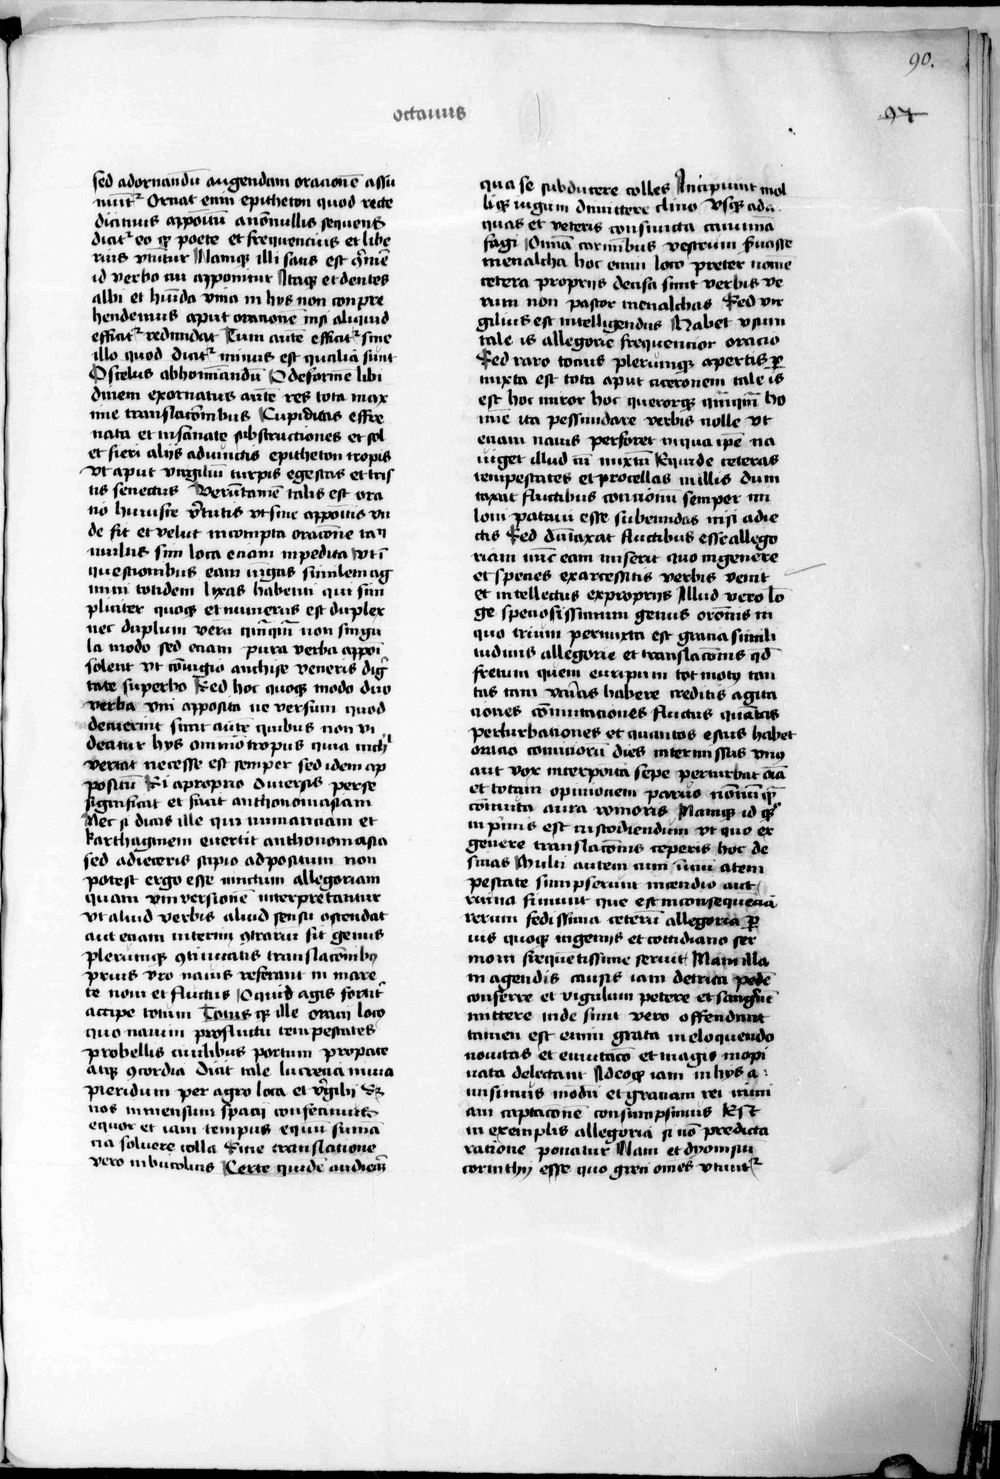 90.
octauus
97
sed adornandū augendam orationē assu
mūt᷑ Ornat enim epitheton quod recte
dicimus appoītū a nōnullis sequens
dicit᷑ eo qꝫ poete et frequencius et libe
rius vtūtur Namqꝫ illi satis est ꝯuenire
id verbo cui apponitur Itaqꝫ et dentes
albi et hūida vina in hys non conpre
hendemus aput orationē nisi aliquid
efficit᷑ redundat Cum autē efficit᷑ sine
illo quod dicit᷑ minus est qualia sunt
O scelus abhominandū O deformē libi
dinem exornatus autē res tota max
ime translacōnibus Cupiditas effre
nata et insanate substructiones et sol
et fieri alijs adiunctis epitheton tropis
vt aput virgiliū turpis egestas et tris
tis senectus Verūtamē talis est ora
cio huiusce v̄tutis vt sine appoitis nu
de sit et velut incompta oratōne tan̄
umlius sim loca etiam inpedita vt ī
questionibus eam iūgas similem ag
mini totidem lixas habenti qui sim
pliciter quoqꝫ et numerus est duplex
nec duplum verū quāquā non singu
la modo sed etiam pura verba appoī
solent vt cōiugio anchise veneris dig̅
tate superbo Sed hoc quoqꝫ modo duo
verba vni apposita ne versum quod
decuerint sunt autē quibus non vi
deatur hys omnīo tropus quia nichil
vertat necesse est semper sed idem ap
positū Si a proprio diuersis perse
significat et facit anthonomasiam
Nec si dicas ille qui numantiam et
karthaginem euertit anthonomasia
sed adieceris scipio adpositum non
potest ergo esse iunctum allegoriam
quam vm versionē interpretantur
vt aliud verbis aliud sensu ostendat
aut etiam interim ꝯtrariū sit genus
plerumqꝫ ꝯtinuatis translacōnibꝫ
prius vro nauis referant in mare
te noui et fluctus O quid agis fortit᷑
accipe totum Totus qꝫ ille oracij loco
quo nauim profluctu tempestates
probellis ciuilibus portum propace
atqꝫ ꝯcordia Dicit tale lucrecia inuia
pieridum per agro loca et v̄gilii sꝫ
nos inmensum spacij consecimus
equor et iam tempus equū fumā
cia soluere colla Sine translatione
vero in bucolicis Certe quidē audierā
qua se subducere colles Incipiunt mol
liqꝫ iugum dimittere cliuo vsqꝫ ad a
quas et veteris consuncta cacumina
fagi Omnia carminibus vestrum ẜuasse
menalcha hoc enim loco preter nomē
cetera proprijs decisa sunt verbis ve
rum non pastor menalchas Sed vir
gilius est intelligendus Habet vsum
tale is allegorie frequencior oracio
Sed raro tocius plerumqꝫ apertis ꝑ
mixta est tota aput ciceronem tale is
est hoc miror hoc querorqꝫ quāquā ho
minē ita pessundare verbis nolle vt
etiam nauis perforet in qua ipē na
uiget illud in mixtū Equide ceteras
tempestates et procellas in illis dum
taxat fluctibus concionū semper mi
loni putaui esse subeundas nisi adie
ctis Sed dūtaxat fluctibus esse allego
riam nūc eam miserit quo in genere
et species ex arcessitis verbis venit
et intellectus ex proprijs Illud vero lō
ge speciosissimum genus orōnis in
quo trium permixta est gracia simili
tudinis allegorie et translacōnis qd̄
fretum quem euripum tot motꝫ tan
tas tam varias habere creditis agita
ciones cōmutaciones fluctus quātas
perturbationes et quantos estus habet
oracio comitiorū dies intermissus vnꝫ
aut vox interposita sepe perturbat oīa
et totam opinionem paruo nōnūqᷓ
cōmutat aura rumoris Namqꝫ id qꝫ
in p̄mis est custodiendum vt quo ex
genere translacōnis ceperis hoc de
sinas Multi autem cum inicium a tem
pestate sumpserunt incendio aut
ruina finiunt que est inconsequencia
rerum fedissima ceterū allegoria ꝑ
uis quoqꝫ ingenijs et cottidiano ser
moni frequētissime seruit Nam illa
in agendis causis iam detrita pedē
conferre et vigulum petere et sangꝫinē
mittere inde sunt vero offendunt
tamen est enim grata in eloquendo
nouitas et emutacō et magis inopi
nata delectant Adeoqꝫ iam in hys a
misimus modū et graciam rei nimi
am captacōne consumpsimus Est
in exemplis allegoria si nō predicta
ratione ponatur Nam et dyonisiū
corinthij esse quo greci omēs vtunt᷑